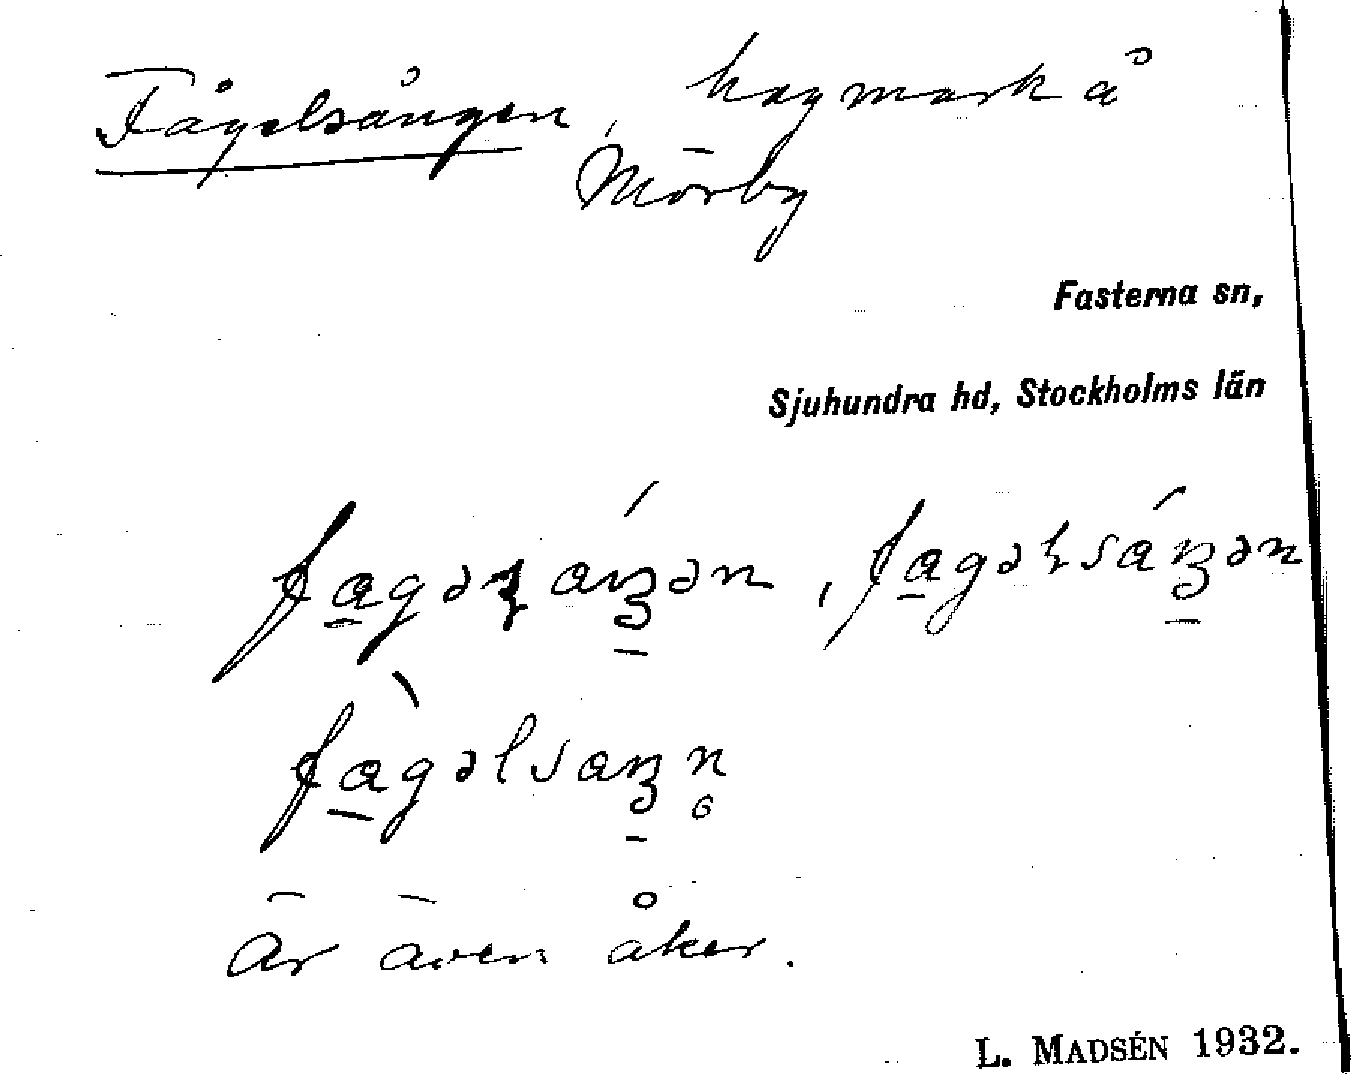 Fågelsången, hagmark å
Mörby
Fasterna sn,
Sjuhundra hd, Stockholms län
Är även åker.
L. MADSÉN 1932.